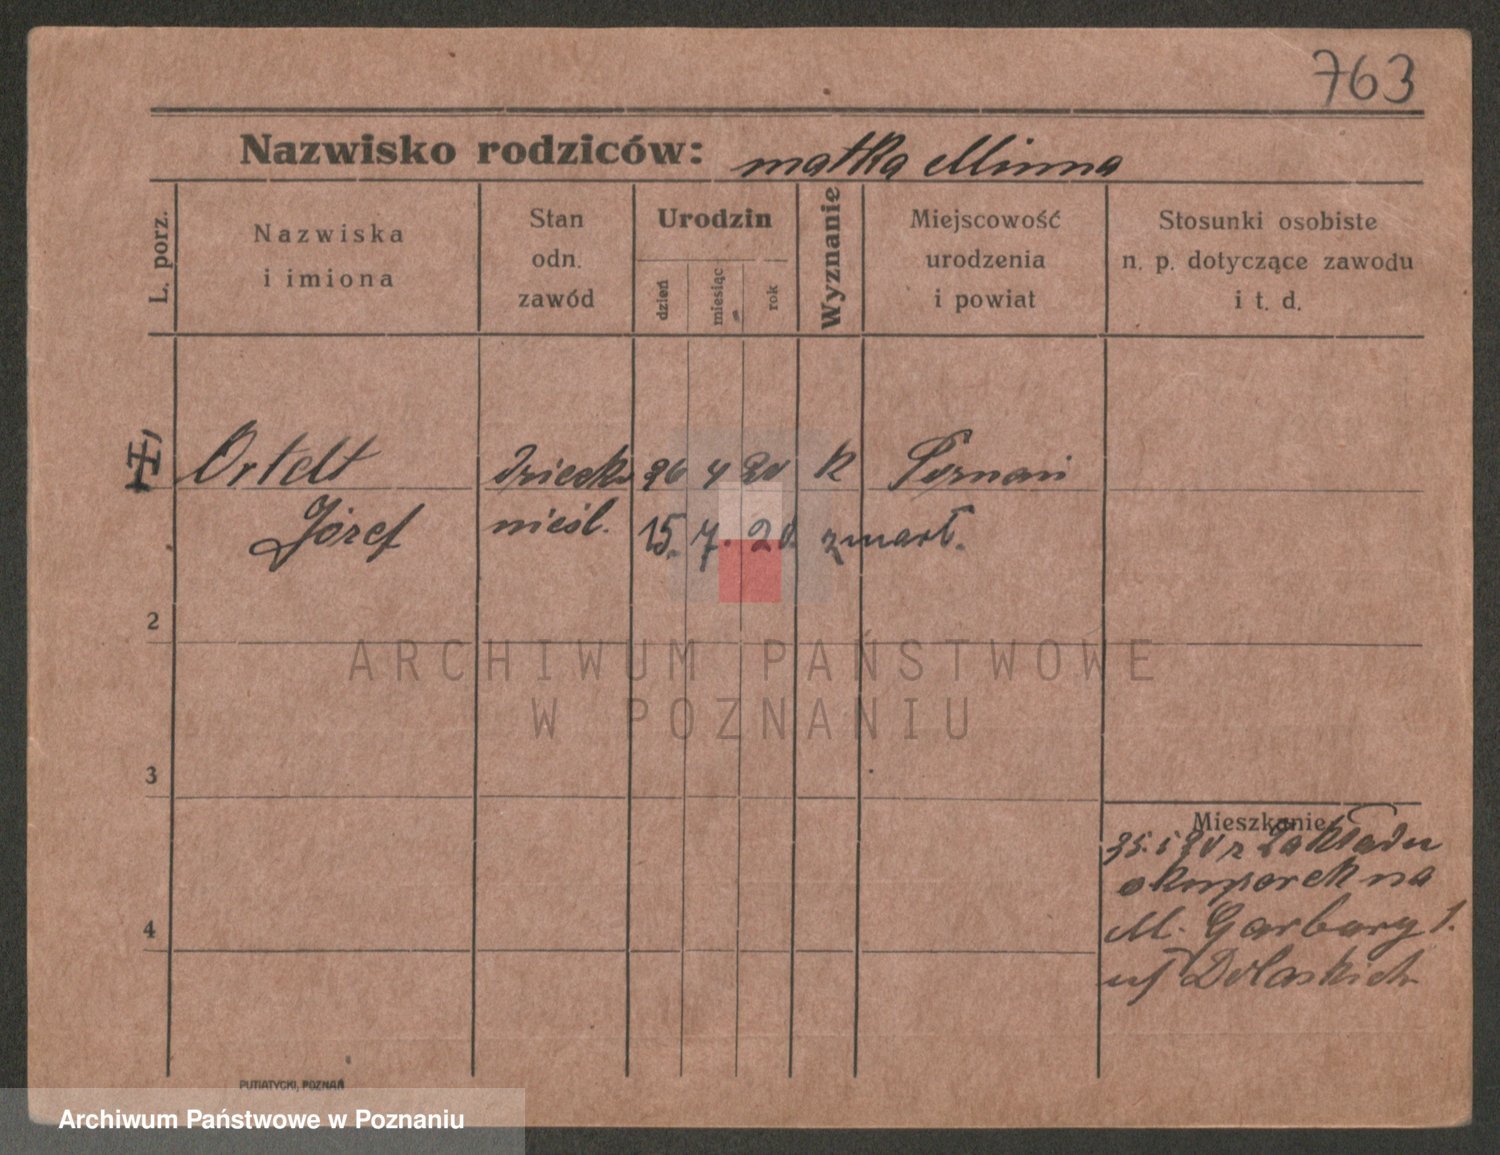 763
Nazwisko rodziców: matka Minna
L. porz.
Nazwiska
i imiona
Stan
odn.
zawód
Urodzin
dzień
miesiąc
rok
Wyznanie
Miejscowość
urodzenia
i powiat
Stosunki osobiste
n. p. dotyczące zawodu
i t. d.
Ortelt dziecko 26 4 20 k Poznań
Józef nieśl. 15. 7. 20. zmarł.
2
ARCHIWUM PAŃSTWOWE
W POZNANIU
3
Mieszkanie
z Zakładu
na
4
M. Garbary 1.
PUTIATYCKI, POZNAŃ
Archiwum Państwowe w Poznaniu